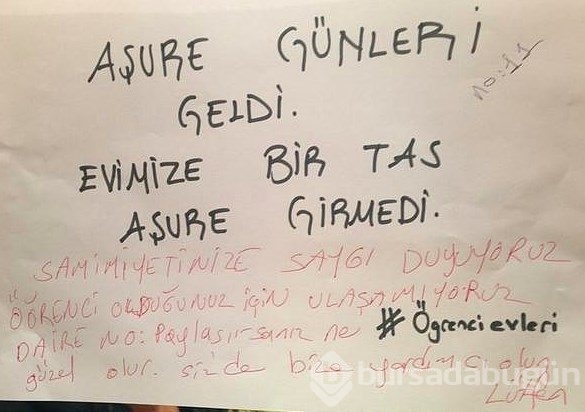 AŞURE GÜNLERİ
GELDİ.
no: 11
EVİMİZE BİR TAS
AŞURE GİRMEDİ.
SAMİMİYETİNİZE SAYGI DUYUYORUZ
ÖĞRENCİ OLDUĞUNUZ İÇİN ULAŞAMIYORUZ
DAİRE NO: Paylaşırsanız ne
#Ögrencievleri
güzel olur. sizde bize yardımcı olun
LÜTFEN
bursadabugün